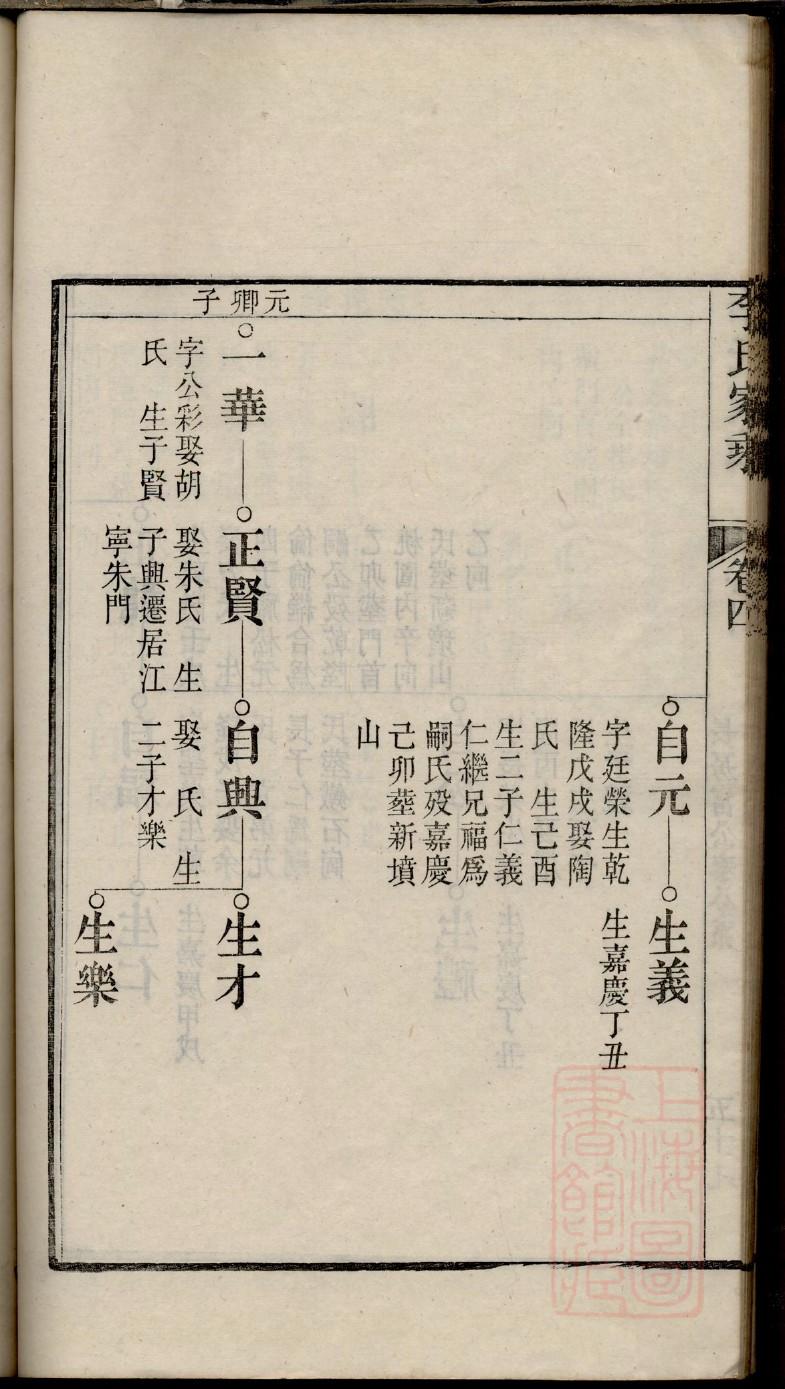 李氏家乘
卷四
自元
字廷榮生乾
隆戊戌娶陶
氏 生己酉
生二子仁義
仁繼兄福爲
嗣氏歿嘉慶
己卯塟新墳
山
生義
生嘉慶丁丑
元卿子
一華
字公彩娶胡
氏 生子賢
正賢
娶朱氏 生
子興遷居江
寧朱門
自興
娶 氏 生
二子才樂
生才
生樂
上海圖
書館藏